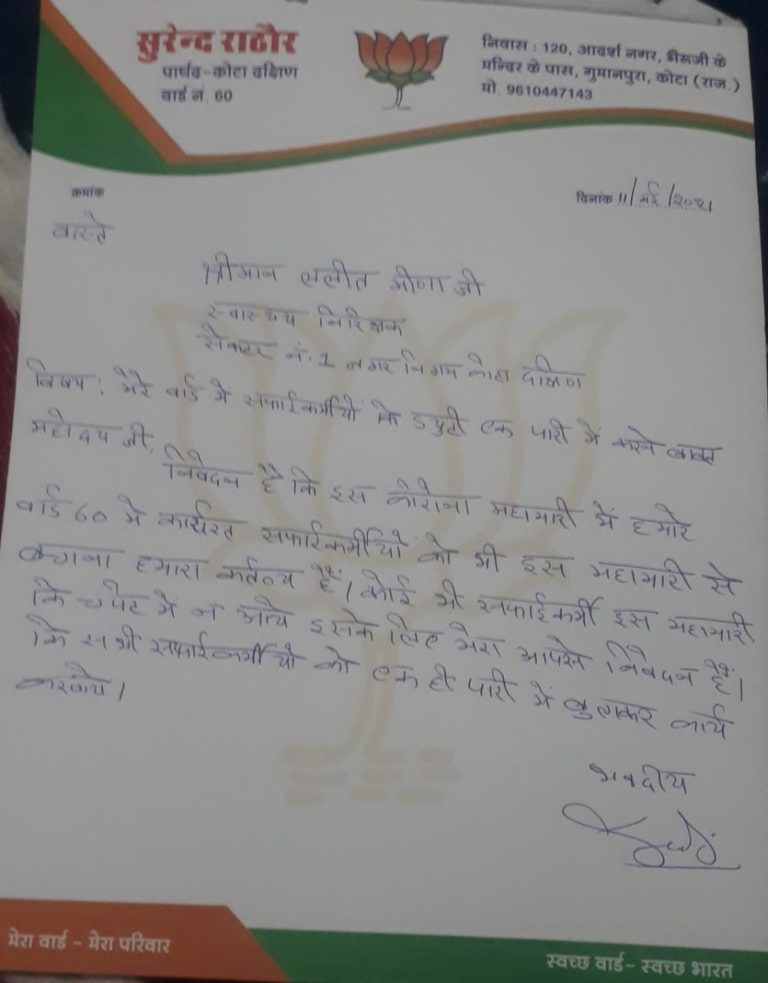 सुरेन्द राठौर
पार्षद-कोटा दक्षिण
वार्ड नं. 60
निवास : 120, आदर्श नगर, भैरूजी के
मन्दिर के पास, गुमानपुरा, कोटा (राज.)
मो. 9610447143
क्रमांक
दिनांक 11/मई/2021
वास्ते
श्रीमान ललीत मीणा जी
स्वास्थय निरिक्षक
सेक्टर नं. 1 नगर निगम कोटा दक्षिण
विषय : मेरे वार्ड मे सफाईकर्मीयो कि डयुटी एक पारी में करने बाबत
महोदय जी,
निवेदन है कि इस कोरोना महामारी में हमारे
वार्ड 60 मे कार्यरत सफाईकर्मीयो को भी इस महामारी से
बचाना हमारा कर्तव्य हैं। कोई भी सफाईकर्मी इस महामारी
कि चपेट मे न आये इसके लिए मेरा आपसे निवेदन हैं।
कि सभी सफाईकर्मीयो को एक ही पारी में बुलाकर कार्य
करवाये।
भवदीय
मेरा वार्ड - मेरा परिवार
स्वच्छ वार्ड- स्वच्छ भारत